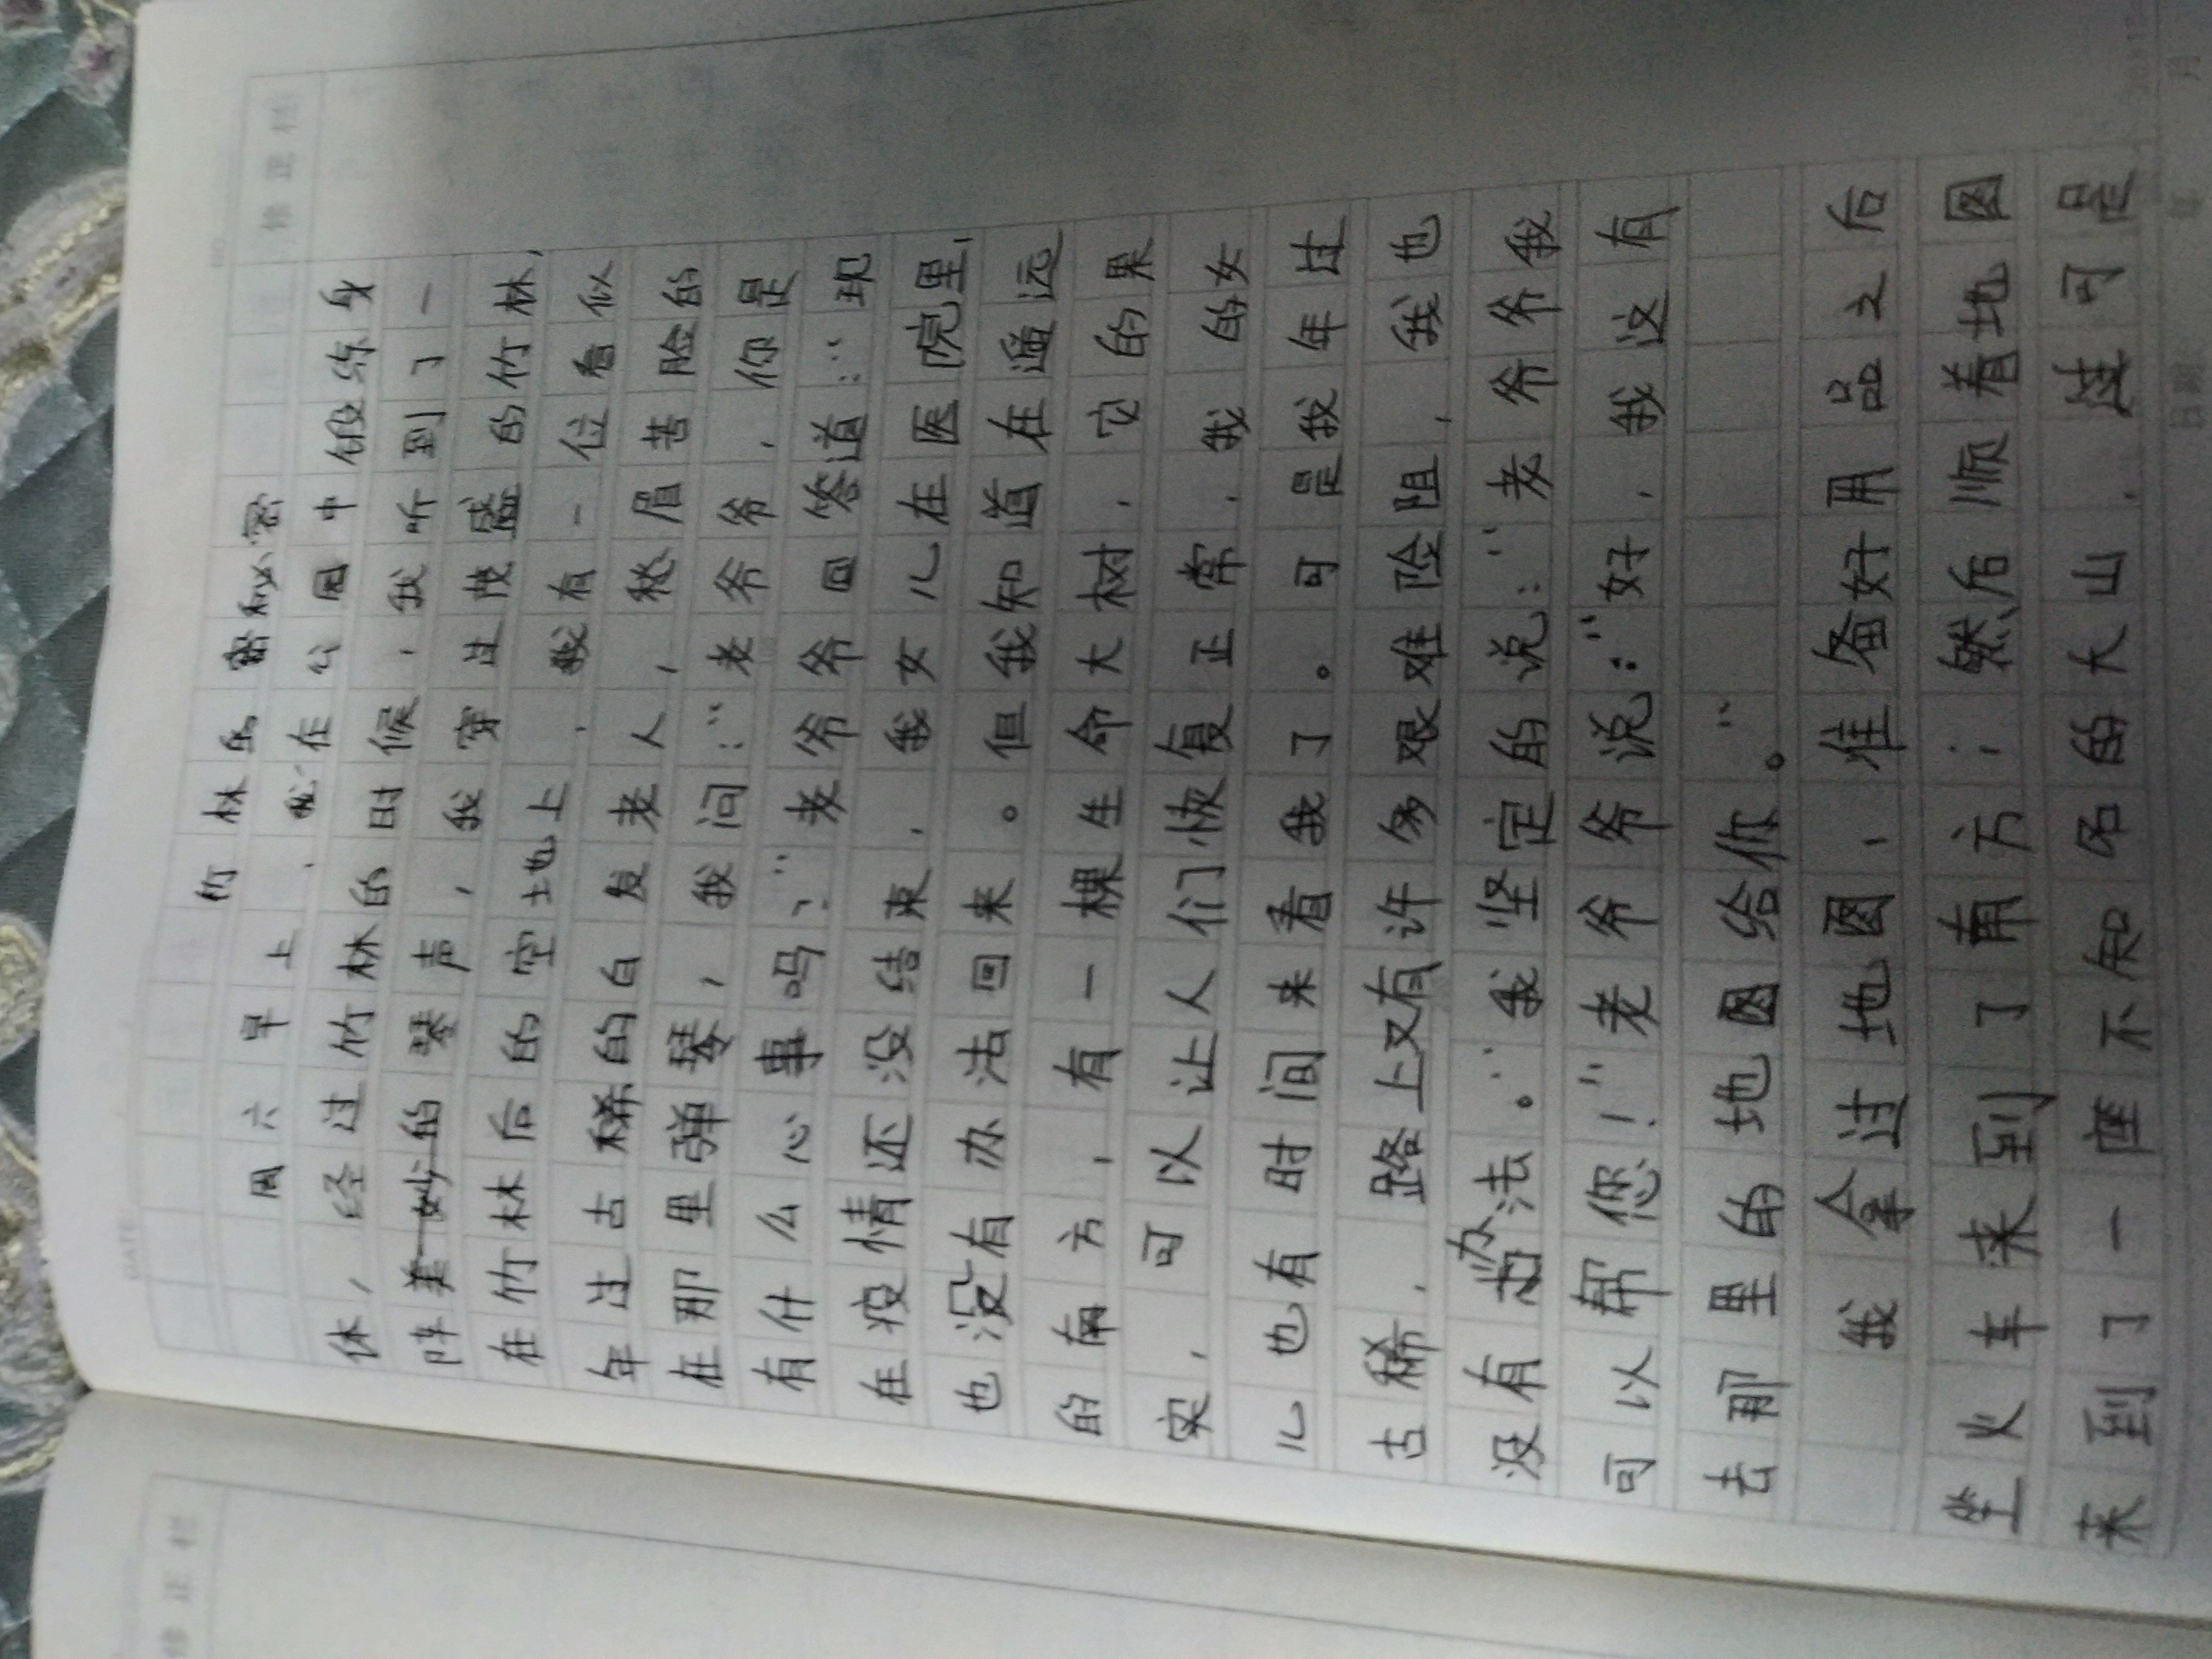 竹林后秘密
周六早上，我在公园中锻练身
体，经过竹林的时候，我听到了一
阵美妙的琴声，我穿过茂盛的竹林，
在竹林后的空地上，我有一位看似
年过古稀的白发老人，愁眉苦脸的
在那里弹琴，我问：“老爷爷，你是
有什么心事吗？”老爷爷回答道：“现
在疫情还没结束，我女儿在医院里，
也没有办法回来。但我知道在遥远
的南方，有一棵生命大树，它的果
实，可以让人们恢复正常，我的女
儿也有时间来看我了。可是我年过
古稀，路上又有许多艰难险阻，我也
没有办法。”我坚定的说：“老爷爷我
可以帮您！”老爷爷说：“好，我这有
去那里的地图给你。”
我拿过地图，准备好用品之后
坐火车来到了南方；然后顺着地图
来到了一座不知名的大山，过可是
修正栏
修正栏
DATE